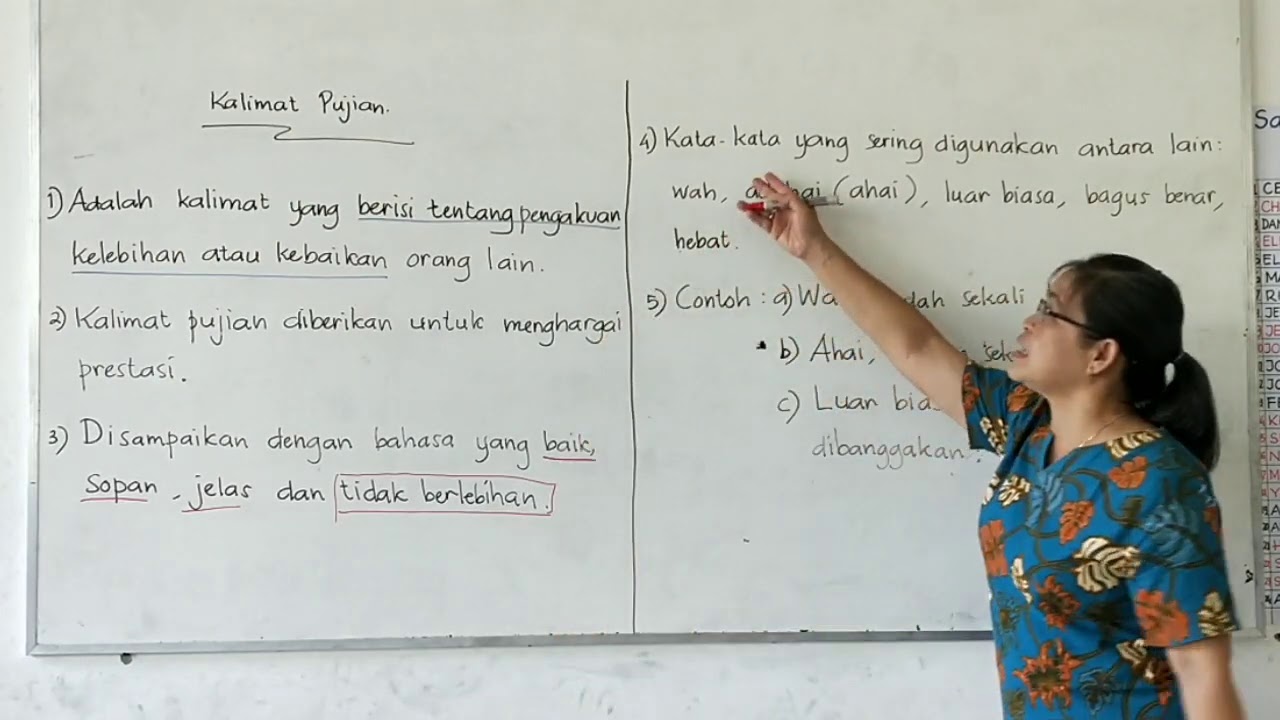 Kalimat Pujian.
1) Adalah kalimat yang berisi tentang pengakuan
kelebihan atau kebaikan orang lain.
2) Kalimat pujian diberikan untuk menghargai
prestasi.
3) Disampaikan dengan bahasa yang baik,
sopan, jelas dan tidak berlebihan.
4) Kata-kata yang sering digunakan antara lain:
wah, (ahai), luar biasa, bagus benar,
hebat.
5) Contoh : a) sekali
b) Ahai,
c) Luar
dibanggakan.